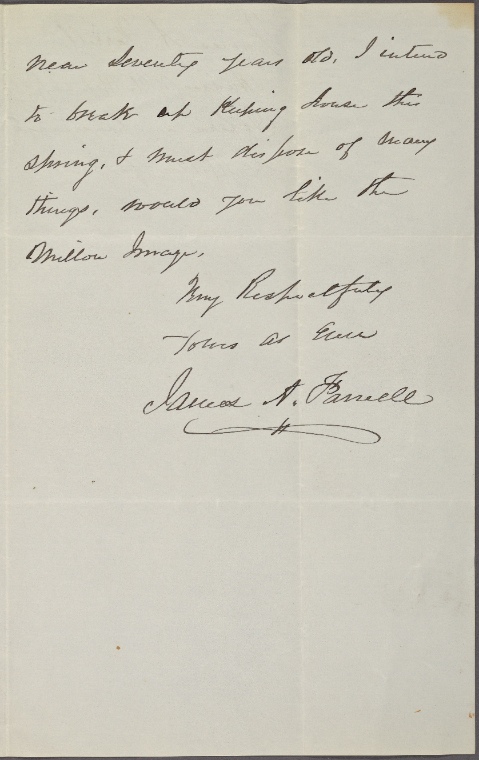 near Seventy years old, I intend
to break up Keeping house this
spring, & must dispose of many
things, would you like the
Milton Image,
Very Respectfully
Yours as Ever
James A.